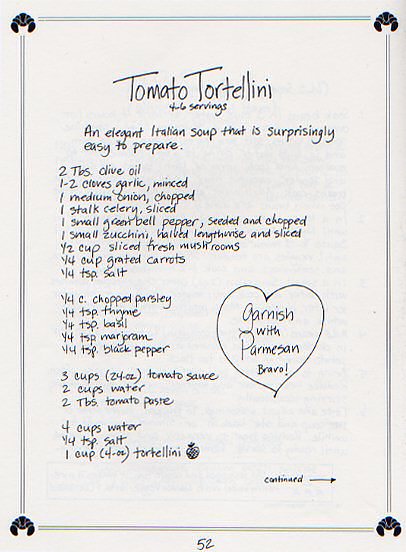 Tomato Tortellini
4-6 servings
An elegant Italian soup that is surprisingly
easy to prepare.
2 Tbs. olive oil
1-2 cloves garlic, minced
1 medium onion, chopped
1 stalk celery, sliced
1 small green bell pepper, seeded and chopped
1 small zucchini, halved lengthwise and sliced
1/2 cup sliced fresh mushrooms
1/4 cup grated carrots
1/4 tsp. salt
1/4 c. chopped parsley
1/4 tsp. thyme
1/4 tsp. basil
1/4 tsp. marjoram
1/4 tsp. black pepper
Garnish
with
Parmesan
Bravo!
3 cups (24-oz) tomato sauce
2 cups water
2 Tbs. tomato paste
4 cups water
1/4 tsp. salt
1 cup (4-oz) tortellini
continued →
52